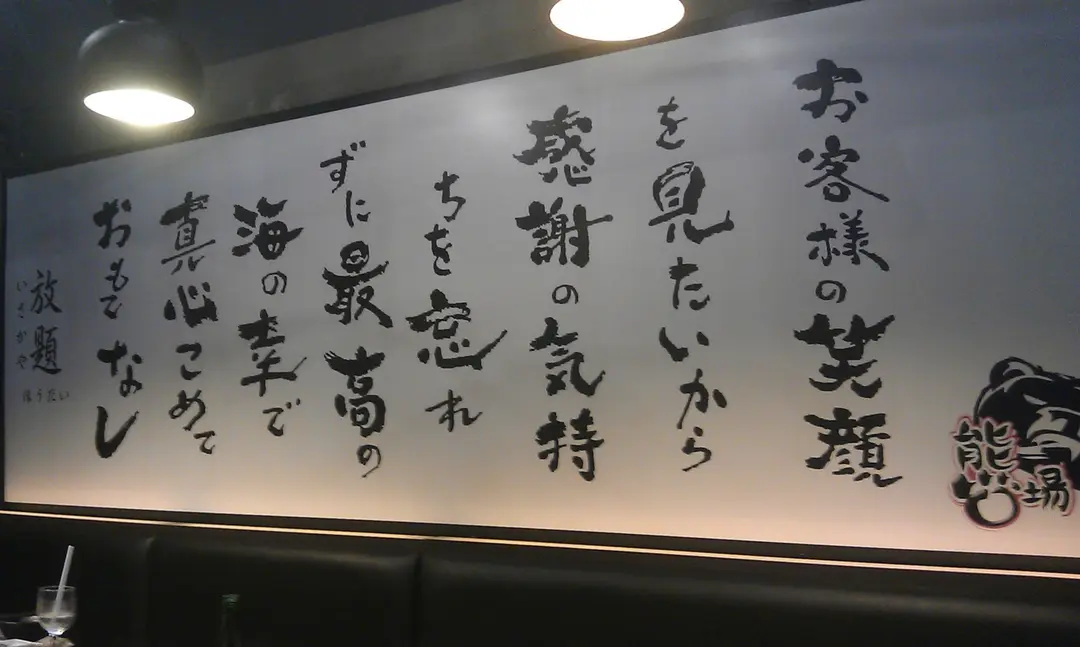 お客様の笑顔
を見たいから
感謝の気持
ちを忘れ
ずに最高の
海の幸で
真心こめて
おもてなし
放題
いさかや
ほうだい